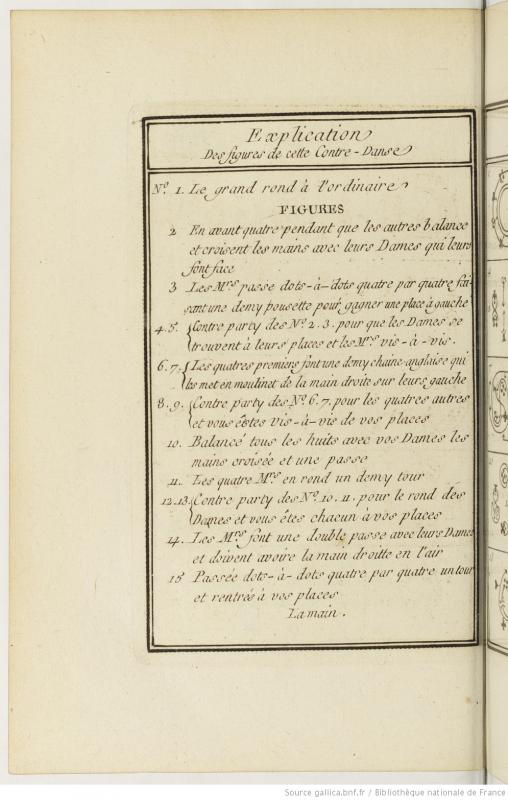 Explication
Des figures de cette Contre-Danse
N.º 1. Le grand rond à l'ordinaire
FIGURES
2 En avant quatre pendant que les autres balance
et croisent les mains avec leurs Dames qui leurs
font face
3 Les M.rs passe dots-à-dots quatre par quatre fai
sant une demy pousette pour gagner une place à gauche
4. 5. Contre party des N.º 2. 3. pour que les Dames se
trouvent à leurs places et les M.rs vis-à-vis.
6. 7. Les quatres premiers font une demy chaine anglaise qui
les met en moulinet de la main droit sur leurs gauche
8. 9. Contre party des N.º 6. 7. pour les quatres autres
et vous êtes vis-à-vis de vos places
10. Balancé tous les huits avec vos Dames les
mains croisée et une passe
11. Les quatre M.rs en rond un demy tour
12. 13. Contre party des N.º 10. 11. pour le rond des
Dames et vous êtes chacun à vos places
14. Les M.rs font une double passe avec leurs Dames
et doivent avoire la main droitte en l'air
15 Passée dots-à-dots quatre par quatre un tour
et rentrée à vos places
La main.
Source gallica.bnf.fr / Bibliothèque nationale de France